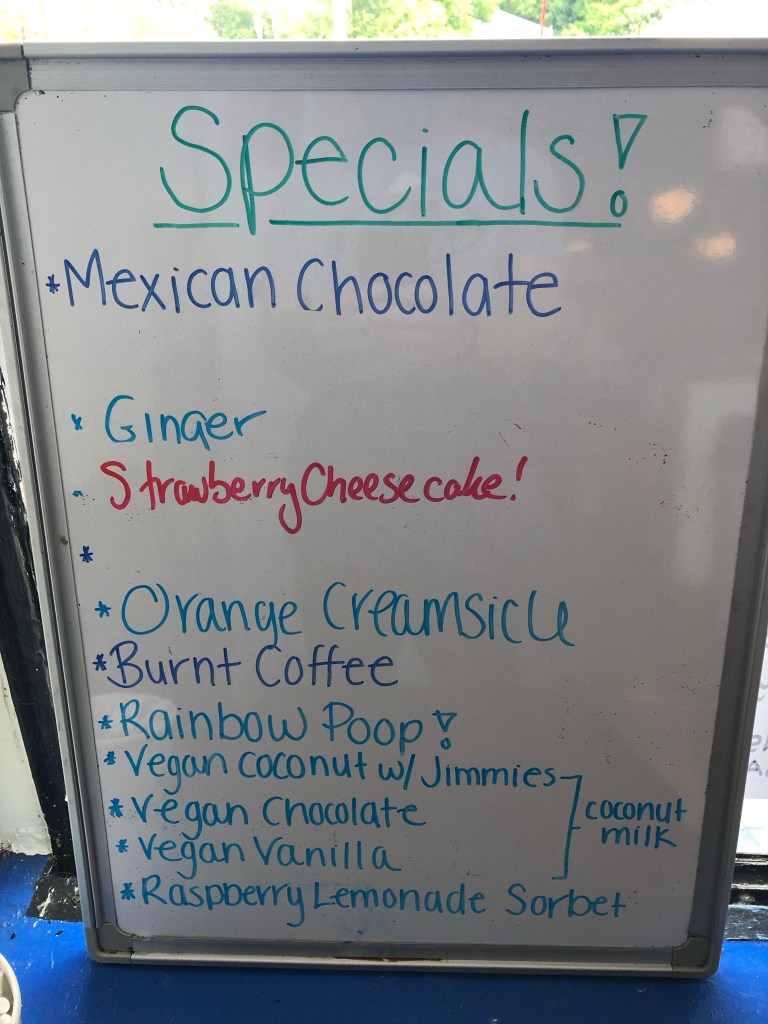 Specials!
*Mexican Chocolate
* Ginger
- Strawberry Cheesecake!
*
* Orange Creamsicle
*Burnt Coffee
*Rainbow Poop!
*Vegan coconut w/ Jimmies
*Vegan Chocolate
*Vegan Vanilla
coconut
milk
*Raspberry Lemonade Sorbet